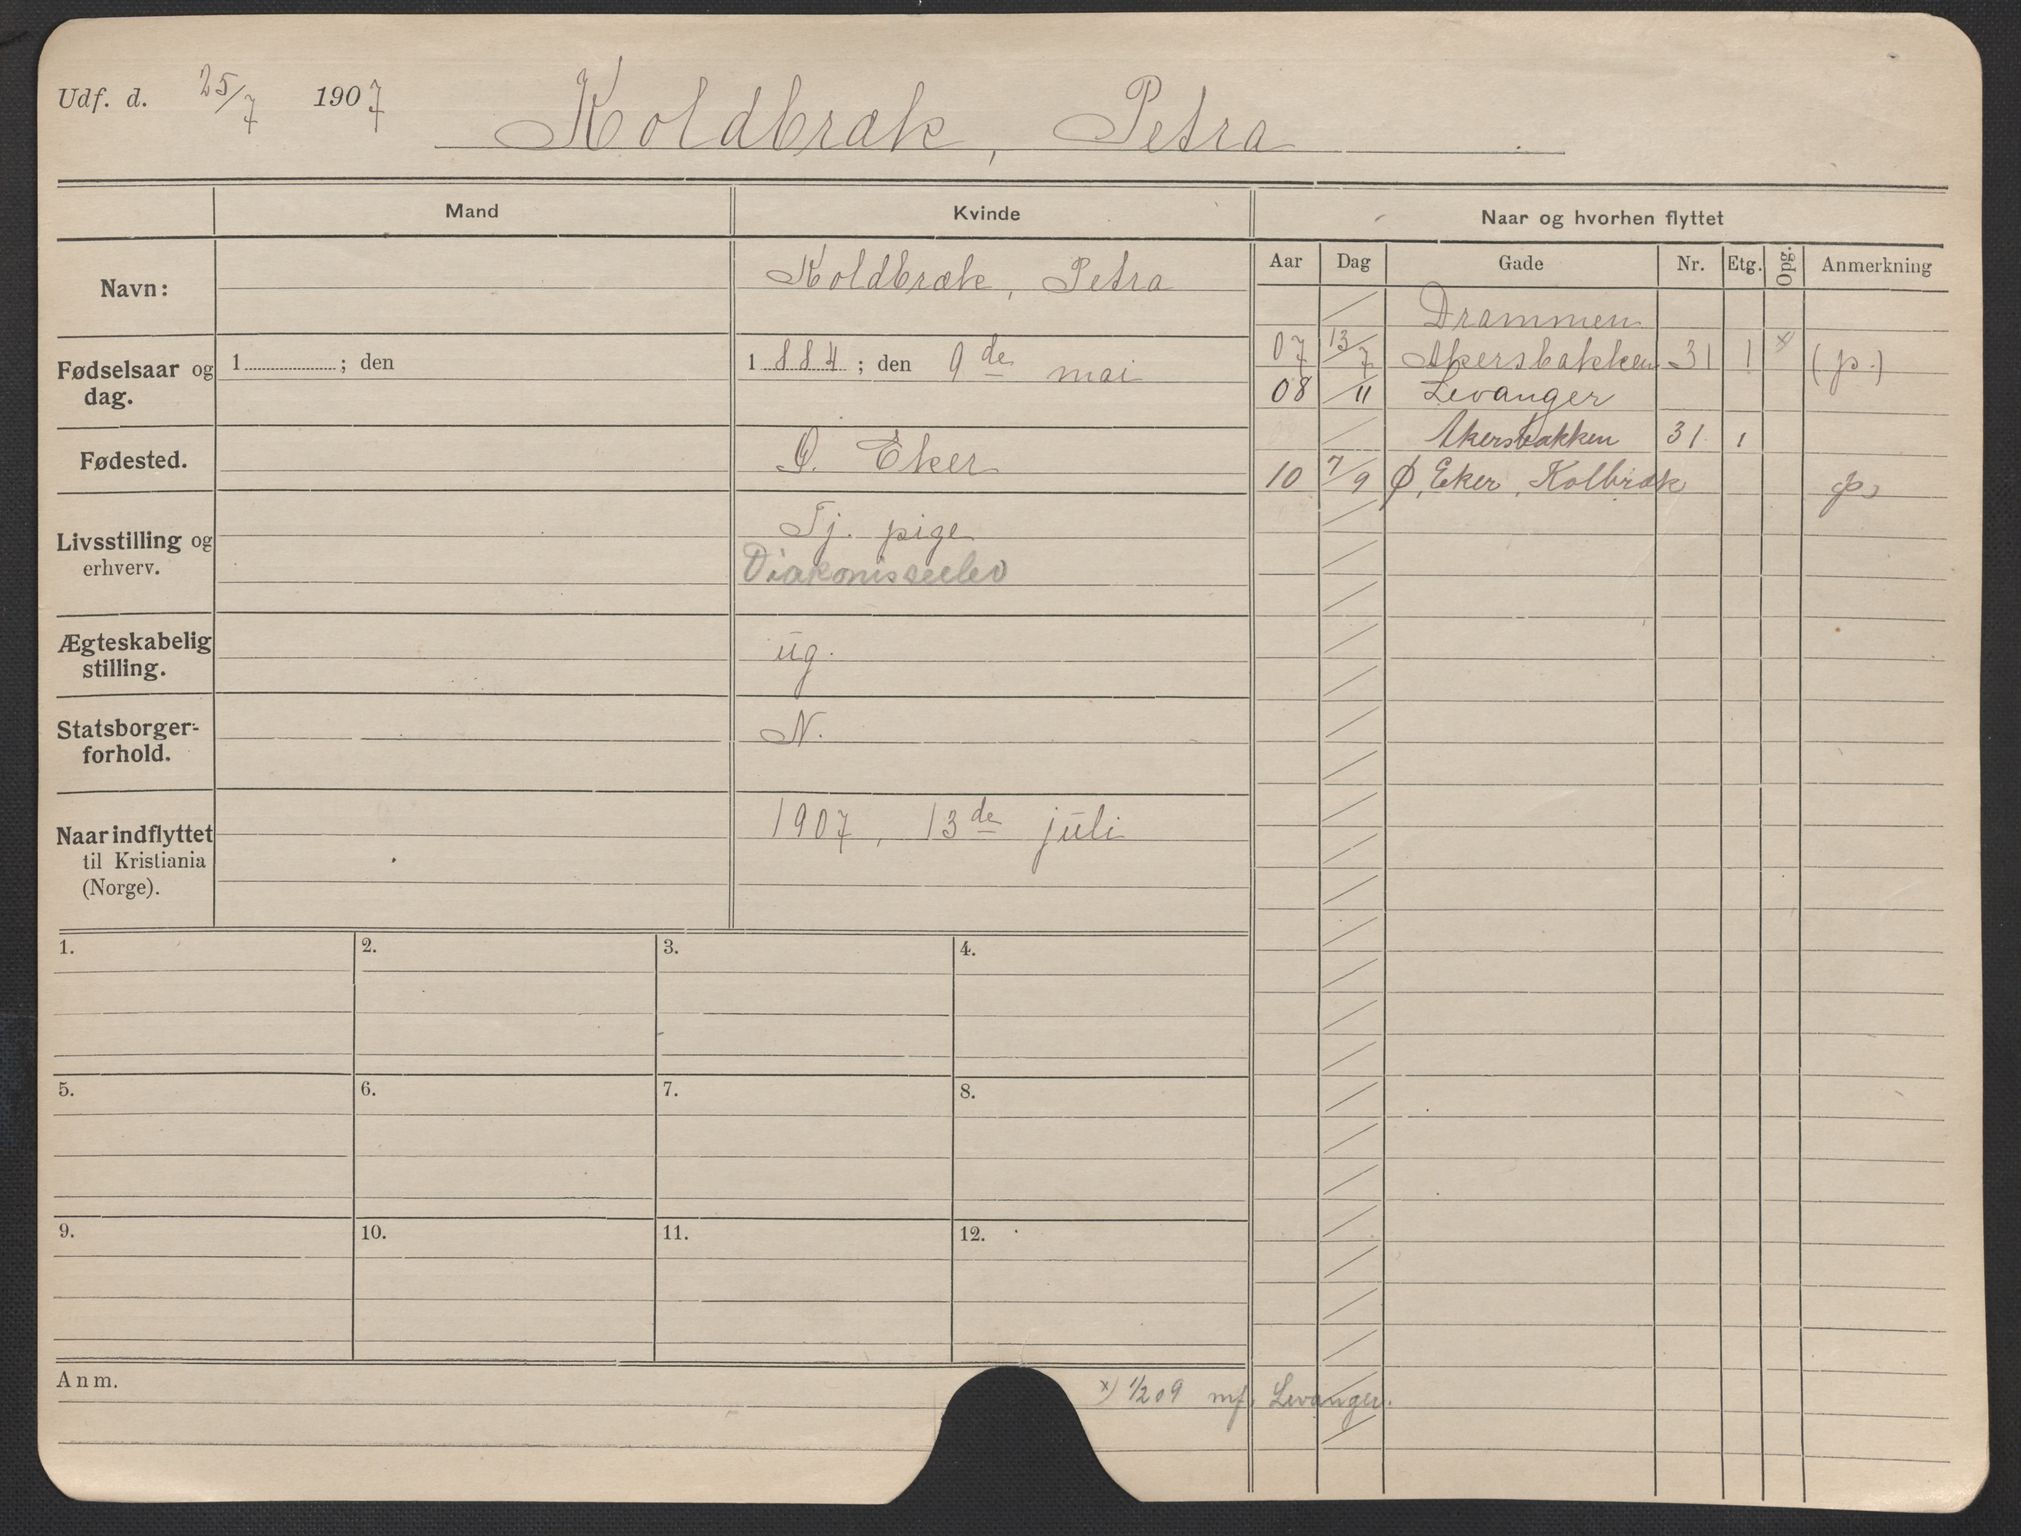 Udf. d. 25/7 1907 Koldbræk, Petra
Mand Kvinde
Navn: Koldbræk, Petra
Fødselsaar og dag. 1 ; den 1884 ; den 9de mai
Fødested. Ø. Eker
Livsstilling og erhverv. Tj. pige
Diakonisseelev
Ægteskabelig stilling. ug.
Statsborger-forhold. N.
Naar indflyttet til Kristiania (Norge). 1907, 13de juli
1. 2. 3. 4.
5. 6. 7. 8.
9. 10. 11. 12.
Anm.
x) 1/2 09 mf. Levanger.
Naar og hvorhen flyttet
Aar Dag Gade Nr. Etg. Opg. Anmerkning
Drammen
07 13/7 Akersbakken 31 1 x) (p.)
08 /11 Levanger
Akersbakken 31 1
10 7/9 Ø, Eker, Kolbræk p.